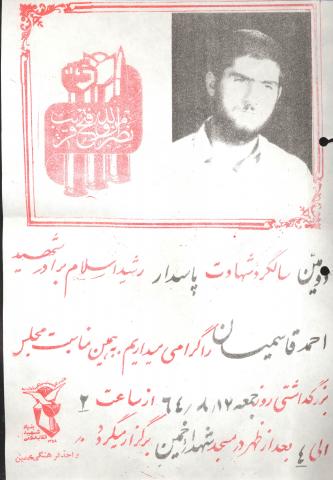 نصر من الله و فتح قریب
دومین سالگرد شهادت پاسدار رشید اسلام برادر شهید
احمد قاسمیان را گرامی میداریم. بهمین مناسبت مجلس
بزرگداشتی روز جمعه ۶۴/۸/۱۷ از ساعت ۲
الی ۴ بعد از ظهر در مسجد شهداء خمین برگزار میگردد.
بنیاد
شهید
انقلاب اسلامی
واحد فرهنگی خمین